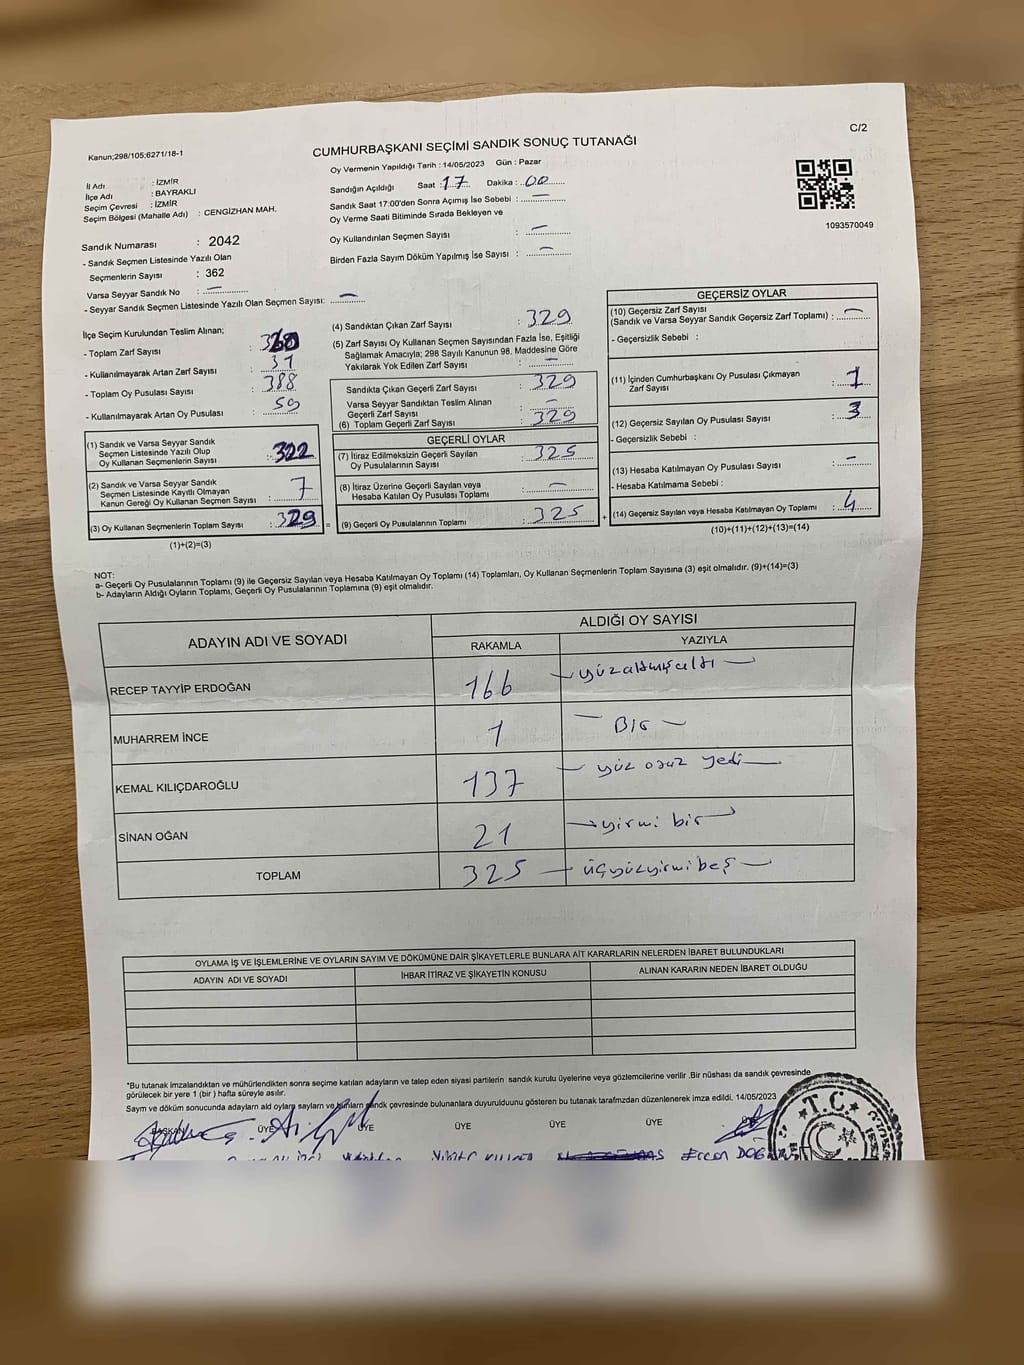 C/2
Kanun;298/105;6271/18-1
CUMHURBAŞKANI SEÇİMİ SANDIK SONUÇ TUTANAĞI
Oy Vermenin Yapıldığı Tarih : 14/05/2023 Gün : Pazar
İl Adı : İZMİR
İlçe Adı : BAYRAKLI
Seçim Çevresi : İZMİR
Seçim Bölgesi (Mahalle Adı) : CENGİZHAN MAH.
Sandığın Açıldığı Saat : 17 Dakika : 00
Sandık Saat 17:00'den Sonra Açımış İse Sebebi : —
Oy Verme Saati Bitiminde Sırada Bekleyen ve
Oy Kullandırılan Seçmen Sayısı : —
Birden Fazla Sayım Döküm Yapılmış İse Sayısı : —
1093570049
Sandık Numarası : 2042
- Sandık Seçmen Listesinde Yazılı Olan
Seçmenlerin Sayısı : 362
Varsa Seyyar Sandık No : —
- Seyyar Sandık Seçmen Listesinde Yazılı Olan Seçmen Sayısı: —
İlçe Seçim Kurulundan Teslim Alınan;
- Toplam Zarf Sayısı :
- Kullanılmayarak Artan Zarf Sayısı : 31
- Toplam Oy Pusulası Sayısı : 388
- Kullanılmayarak Artan Oy Pusulası : 59
(1) Sandık ve Varsa Seyyar Sandık
Seçmen Listesinde Yazılı Olup
Oy Kullanan Seçmenlerin Sayısı : 322
(2) Sandık ve Varsa Seyyar Sandık
Seçmen Listesinde Kayıtlı Olmayan
Kanun Gereği Oy Kullanan Seçmen Sayısı : 7
(3) Oy Kullanan Seçmenlerin Toplam Sayısı : 329 =
(1)+(2)=(3)
(4) Sandıktan Çıkan Zarf Sayısı : 329
(5) Zarf Sayısı Oy Kullanan Seçmen Sayısından Fazla İse, Eşitliği
Sağlamak Amacıyla; 298 Sayılı Kanunun 98. Maddesine Göre
Yakılarak Yok Edilen Zarf Sayısı : —
Sandıkta Çıkan Geçerli Zarf Sayısı : 329
Varsa Seyyar Sandıktan Teslim Alınan
Geçerli Zarf Sayısı : —
(6) Toplam Geçerli Zarf Sayısı : 329
GEÇERLİ OYLAR
(7) İtiraz Edilmeksizin Geçerli Sayılan
Oy Pusulalarının Sayısı : 325
(8) İtiraz Üzerine Geçerli Sayılan veya
Hesaba Katılan Oy Pusulası Toplamı : —
(9) Geçerli Oy Pusulalarının Toplamı : 325 +
GEÇERSİZ OYLAR
(10) Geçersiz Zarf Sayısı
(Sandık ve Varsa Seyyar Sandık Geçersiz Zarf Toplamı) : —
- Geçersizlik Sebebi :
(11) İçinden Cumhurbaşkanı Oy Pusulası Çıkmayan
Zarf Sayısı : 1
(12) Geçersiz Sayılan Oy Pusulası Sayısı : 3
- Geçersizlik Sebebi :
(13) Hesaba Katılmayan Oy Pusulası Sayısı : —
- Hesaba Katılmama Sebebi :
(14) Geçersiz Sayılan veya Hesaba Katılmayan Oy Toplamı : 4
(10)+(11)+(12)+(13)=(14)
NOT:
a- Geçerli Oy Pusulalarının Toplamı (9) ile Geçersiz Sayılan veya Hesaba Katılmayan Oy Toplamı (14) Toplamları, Oy Kullanan Seçmenlerin Toplam Sayısına (3) eşit olmalıdır. (9)+(14)=(3)
b- Adayların Aldığı Oyların Toplamı, Geçerli Oy Pusulalarının Toplamına (9) eşit olmalıdır.
ADAYIN ADI VE SOYADI ALDIĞI OY SAYISI
RAKAMLA YAZIYLA
RECEP TAYYİP ERDOĞAN 166 — yüzaltmışaltı —
MUHARREM İNCE 1 — Bir —
KEMAL KILIÇDAROĞLU 137 — yüz otuz yedi —
SİNAN OĞAN 21 — yirmi bir —
TOPLAM 325 — üçyüzyirmibeş —
OYLAMA İŞ VE İŞLEMLERİNE VE OYLARIN SAYIM VE DÖKÜMÜNE DAİR ŞİKAYETLERLE BUNLARA AİT KARARLARIN NELERDEN İBARET BULUNDUKLARI
ADAYIN ADI VE SOYADI İHBAR İTİRAZ VE ŞİKAYETİN KONUSU ALINAN KARARIN NEDEN İBARET OLDUĞU
*Bu tutanak imzalandıktan ve mühürlendikten sonra seçime katılan adayların ve talep eden siyasi partilerin sandık kurulu üyelerine veya gözlemcilerine verilir .Bir nüshası da sandık çevresinde
görülecek bir yere 1 (bir ) hafta süreyle asılır.
Sayım ve döküm sonucunda adayların ald oyların sayıları ve bunların sandk çevresinde bulunanlara duyurulduunu gösteren bu tutanak tarafmzdan düzenlenerek imza edildi. 14/05/2023
BAŞKAN ÜYE ÜYE ÜYE ÜYE ÜYE ÜYE
T.C.